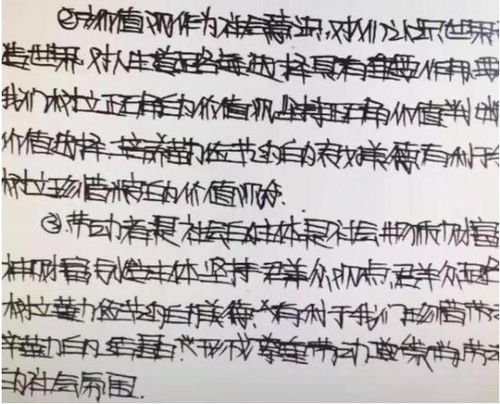 ②价值观作为社会意识,对人们认识世界
造世界,对人生道路的选择具有重要作用,要
我们树立正确的价值观,坚持正确价值判断
价值选择,培养勤俭节约的良好美德,有利于
树立珍惜粮食的价值观念.
③劳动者是社会的主体是社会物质财富
神财富创造主体,坚持群众观点,群众
树立勤俭节约的美德,有利于我们珍惜劳
辛勤的,形成尊重劳动
的社会氛围.